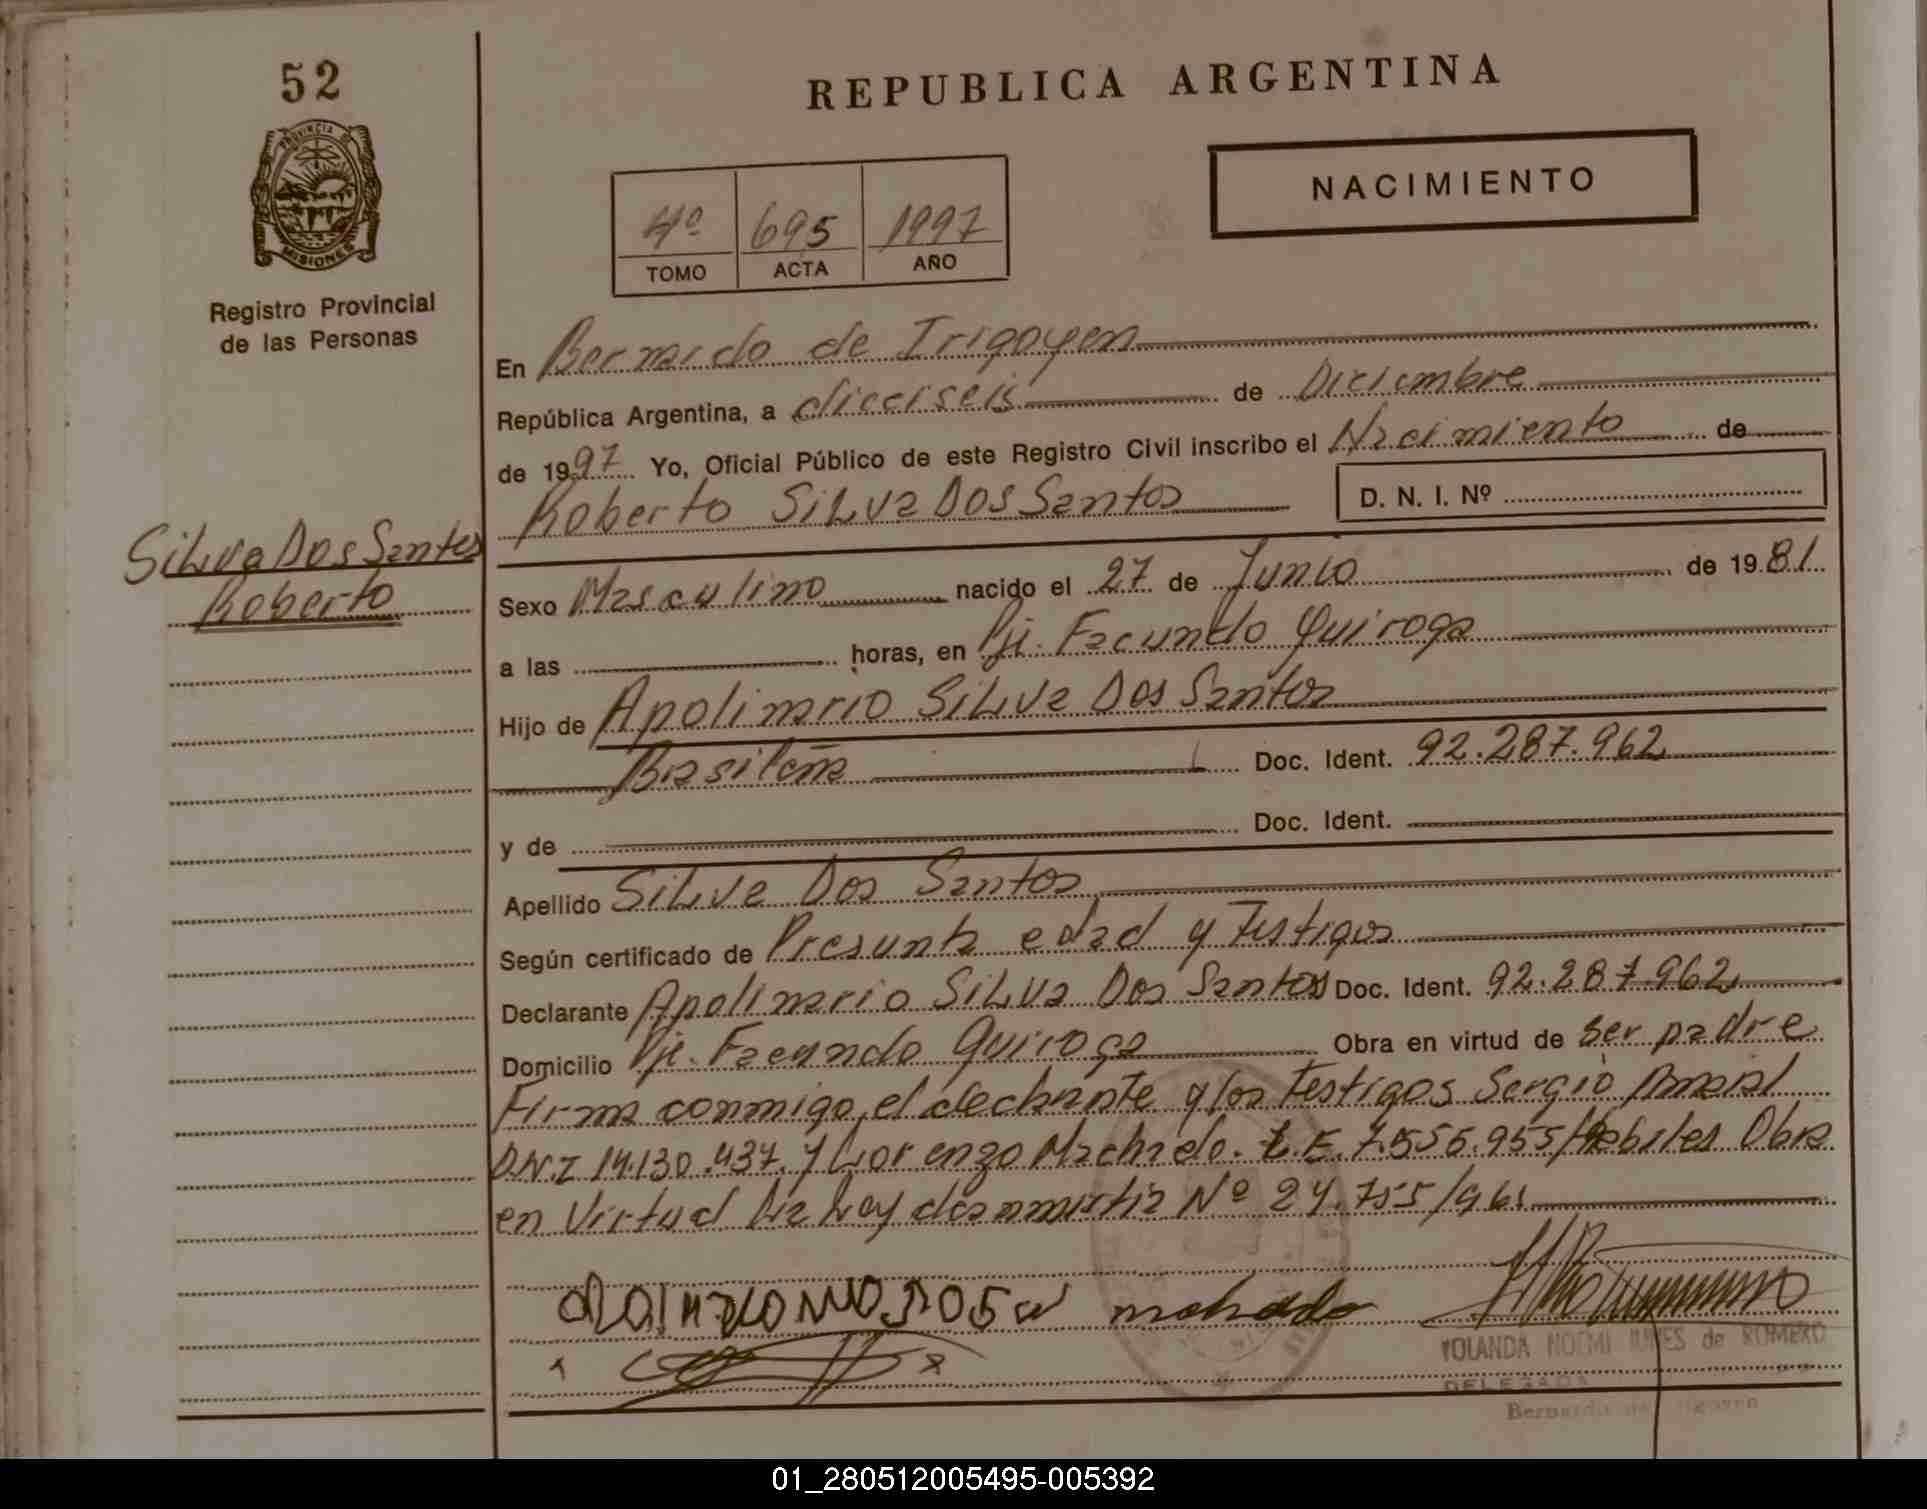 52
PROVINCIA DE
MISIONES
Registro Provincial
de las Personas
Silva Dos Santos
Roberto
REPUBLICA ARGENTINA
NACIMIENTO
4º 695 1997
TOMO ACTA AÑO
En Bernardo de Irigoyen
República Argentina, a dieciseis de Diciembre
de 1997 Yo, Oficial Público de este Registro Civil inscribo el Nacimiento de
Roberto Silva Dos Santos D. N. I. Nº
Sexo Masculino nacido el 27 de Junio de 1981
a las horas, en Pje. Facundo Quiroga
Hijo de Apolinario Silva Dos Santos
Brasileña Doc. Ident. 92.287.962
y de Doc. Ident.
Apellido Silva Dos Santos
Según certificado de Presunta edad y Testigos
Declarante Apolinario Silva Dos Santos Doc. Ident. 92.287.962
Domicilio Pje. Facundo Quiroga Obra en virtud de ser padre
Firma conmigo, el declarante y los Testigos Sergio
D.N.I 14.130.437. y Lorenzo Machado. L.E. 7.555.955/ Obra
en Virtud La Ley de amnistia Nº 24.755/96
YOLANDA NOEMI de ROMERO
DELEGADA
Bernardo de Irigoyen
01_280512005495-005392